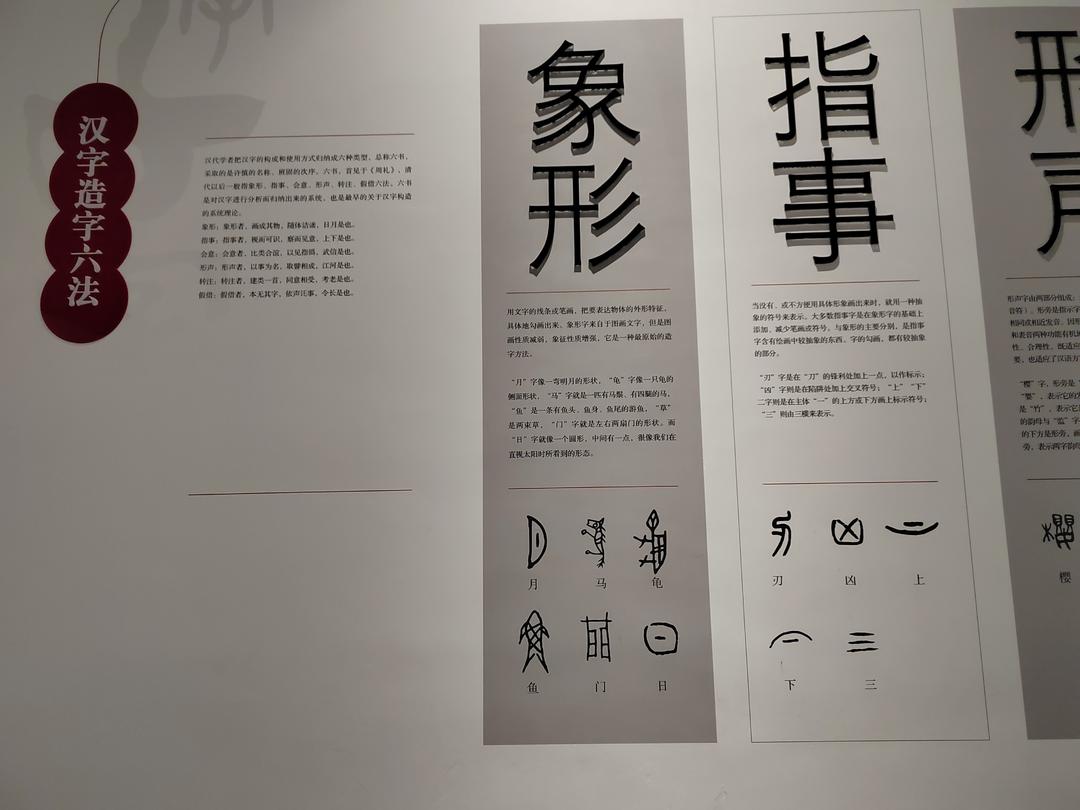 汉字造字六法
汉代学者把汉字的构成和使用方式归纳成六种类型，总称六书，
采取的是许慎的名称、班固的次序。六书，首见于《周礼》，清
代以后一般指象形、指事、会意、形声、转注、假借六法。六书
是对汉字进行分析而归纳出来的系统，也是最早的关于汉字构造
的系统理论。
象形：象形者，画成其物，随体诘诎，日月是也。
指事：指事者，视而可识，察而见意，上下是也。
会意：会意者，比类合谊，以见指撝，武信是也。
形声：形声者，以事为名，取譬相成，江河是也。
转注：转注者，建类一首，同意相受，考老是也。
假借：假借者，本无其字，依声讬事，令长是也。
象形
用文字的线条或笔画，把要表达物体的外形特征，
具体地勾画出来。象形字来自于图画文字，但是图
画性质减弱，象征性质增强，它是一种最原始的造
字方法。
“月”字像一弯明月的形状，“龟”字像一只龟的
侧面形状，“马”字就是一匹有马鬃、有四腿的马，
“鱼”是一条有鱼头、鱼身、鱼尾的游鱼，“草”
是两束草，“门”字就是左右两扇门的形状。而
“日”字就像一个圆形，中间有一点，很像我们在
直视太阳时所看到的形态。
月 马 龟
鱼 门 日
指事
当没有、或不方便用具体形象画出来时，就用一种抽
象的符号来表示。大多数指事字是在象形字的基础上
添加、减少笔画或符号。与象形的主要分别，是指事
字含有绘画中较抽象的东西。字的勾画，都有较抽象
的部分。
“刃”字是在“刀”的锋利处加上一点，以作标示；
“凶”字则是在陷阱处加上交叉符号；“上”“下”
二字则是在主体“一”的上方或下方画上标示符号；
“三”则由三横来表示。
刃 凶 上
下 三
形声
形声字由两部分组成：
音符）。形旁是指示字
相同或相近发音。因形
和表音两种功能有机地
性、合理性。既适应
要，也适应了汉语方
“樱”字，形旁是“
“婴”，表示它的发
是“竹”，表示它
的韵母与“监”字
的下方是形旁，画
旁，表示两字韵母
樱